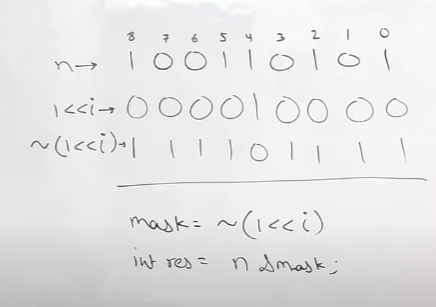 8 7 6 5 4 3 2 1 0
n→ 1 0 0 1 1 0 1 0 1
1<<i→ 0 0 0 0 1 0 0 0 0
~(1<<i)→ 1 1 1 1 0 1 1 1 1
mask = ~(1<<i)
int res = n & mask;